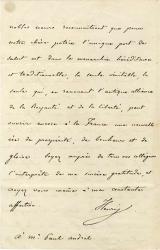 nobles cœurs reconnaissent que pour
notre chère patrie l'unique port de
salut est dans la monarchie héréditaire
et traditionnelle, la seule
seule qui, en ramenant l'antique alliance
de la Royauté et de la liberté, peut
ouvrir encore à la France une nouvelle
ère de prospérité, de bonheur et de
gloire. Soyez auprès de tous vos collègues
l'interprète de ma sincère gratitude, et
croyez vous même à ma constante
affection.
Henri
à Mr Paul Andral